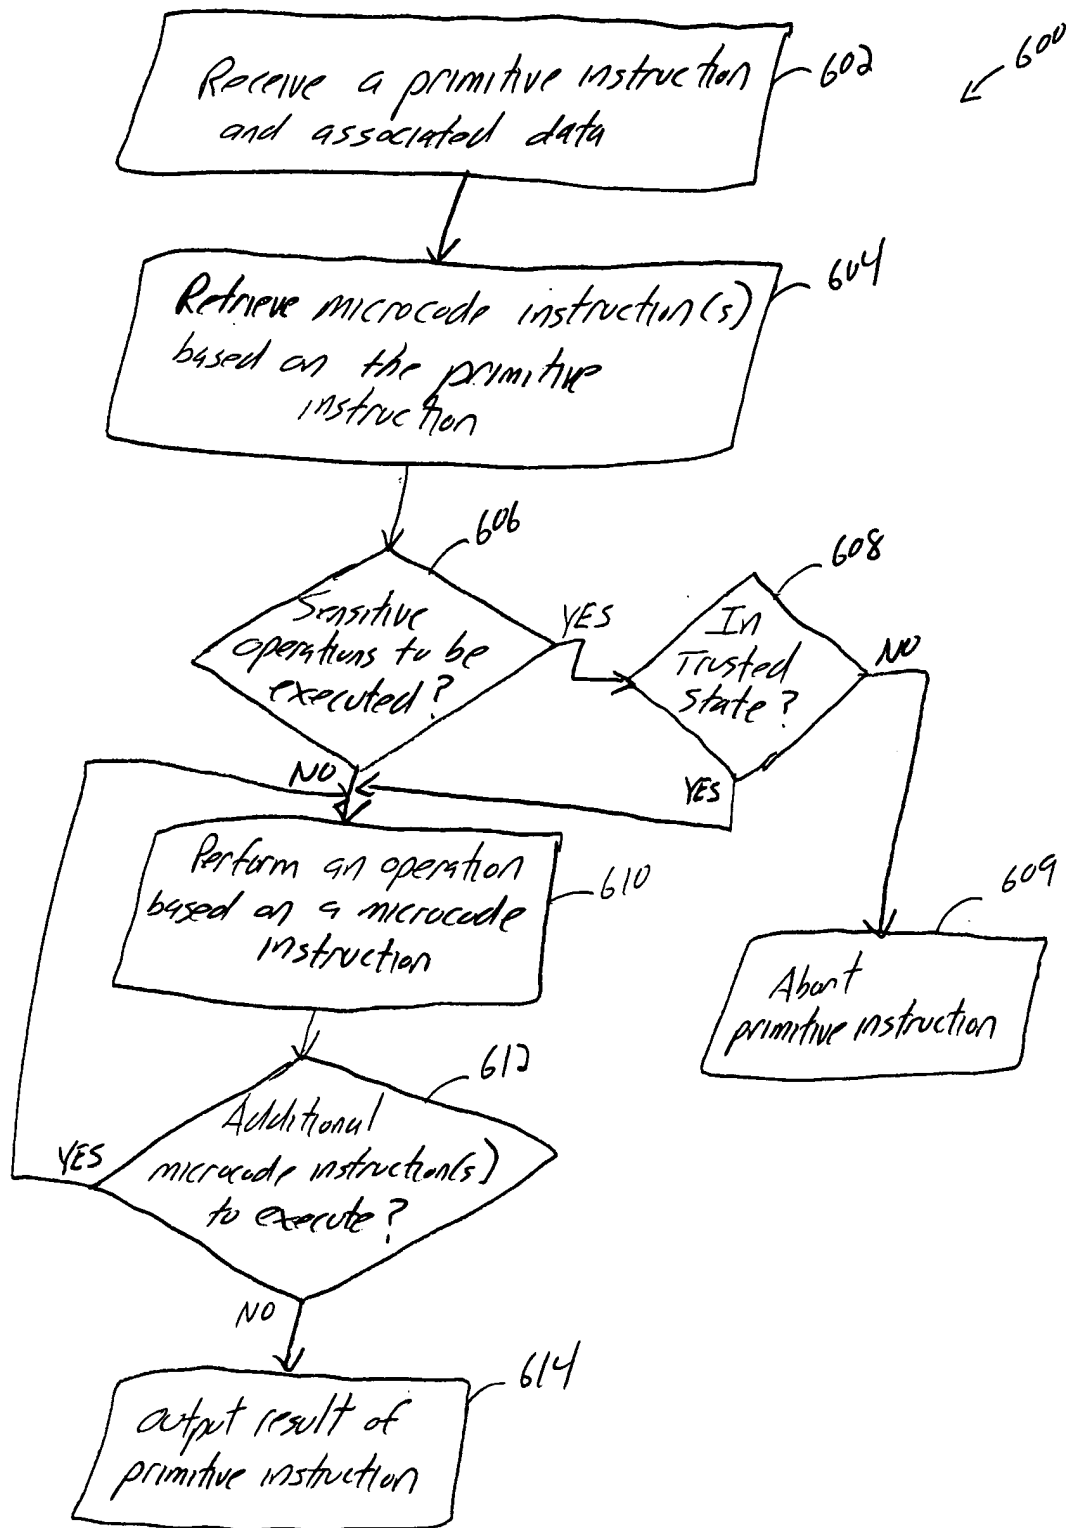 600
Receive a primitive instruction
and associated data
602
Retrieve microcode instruction(s)
based on the primitive
instruction
604
Sensitive
operations to be
executed?
606
YES
In
Trusted
state?
608
NO
NO
YES
Perform an operation
based on a microcode
instruction
610
Abort
primitive instruction
609
Additional
microcode instruction(s)
to execute?
612
YES
NO
Output result of
primitive instruction
614